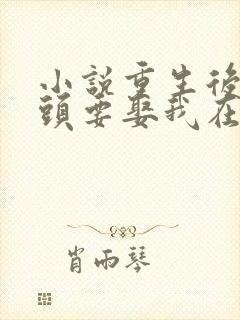 小說重生後
頭要娶我在
肖雨琴